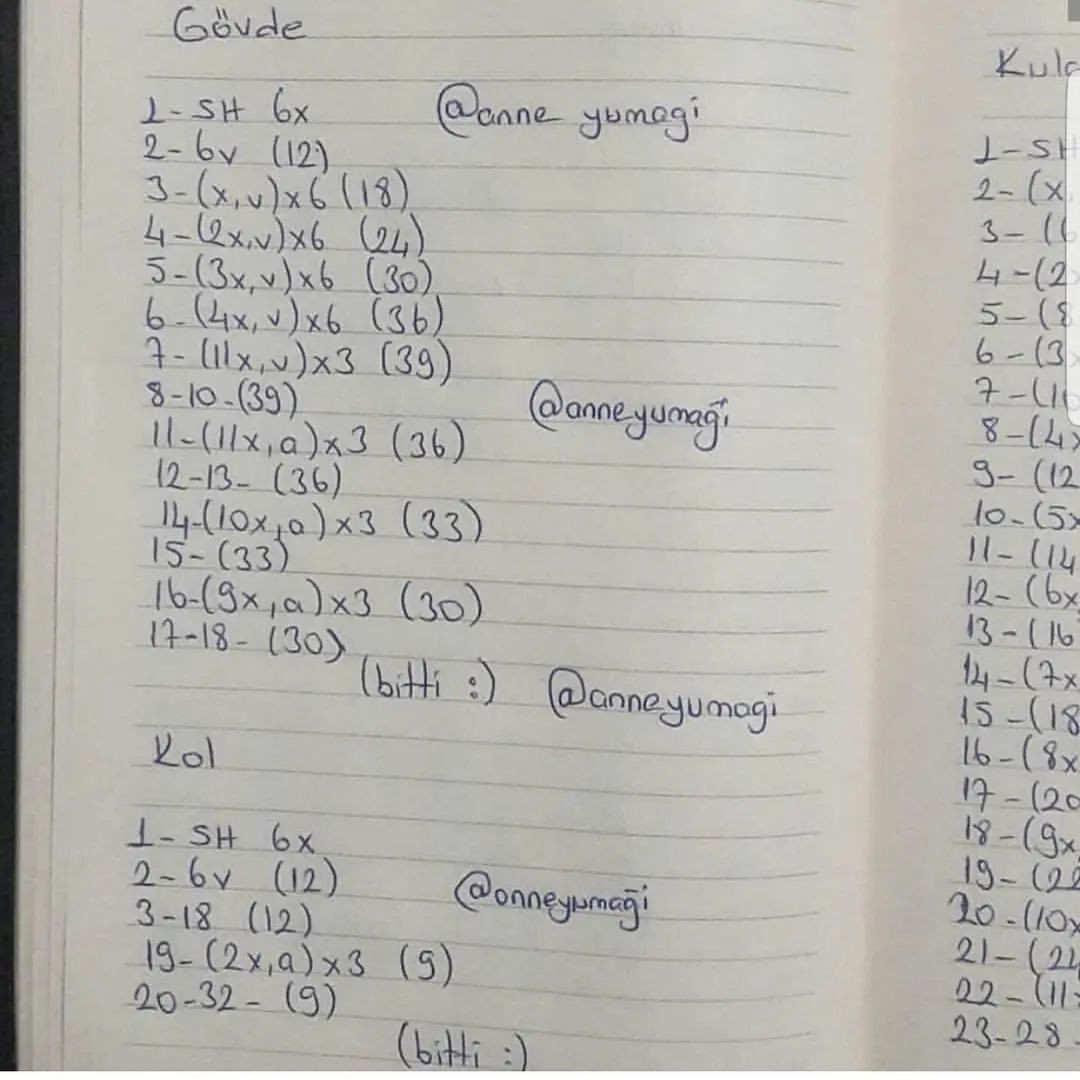 Gövde
1- SH 6x @anne yumagi
2- 6v (12)
3-(x,v)x6 (18)
4-(2x,v)x6 (24)
5-(3x,v)x6 (30)
6-(4x,v)x6 (36)
7-(11x,v)x3 (39)
8-10-(39) @anneyumağı
11-(11x,a)x3 (36)
12-13- (36)
14-(10x,a)x3 (33)
15- (33)
16-(9x,a)x3 (30)
17-18- (30)
(bitti :) @anneyumagi
Kol
1- SH 6x
2-6v (12) @anneyumaği
3-18 (12)
19-(2x,a)x3 (9)
20-32- (9)
(bitti :)
1-SH
2-(x,
3-(6
4-(2
5-(8
6-(3x
7-(10
8-(4x
9-(12
10-(5x
11-(14
12-(6x
13-(16
14-(7x
15-(18
16-(8x
17-(20
18-(9x
19-(22
20-(10x
21-(24
22-(11x
23-28-